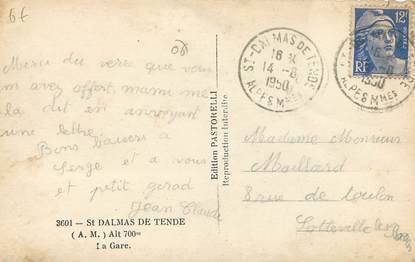 6f
Merci du verre que vous
m avez offert, mami me
la dit en envoyant
une lettre.
Bons baisers a
serge et a vous
et petit gerad
Jean Claude
3601 — St DALMAS DE TENDE
(A. M.) Alt 700m
La Gare.
Edition PASTORELLI
Reproduction Interdite
ST-DALMAS DE TENDE
16 H
14 -8
1950
ALPES MMES
12F
RF
1950
ALPES MMES
Madame Monsieur
Maillard
8 rue de toulon
Sotteville